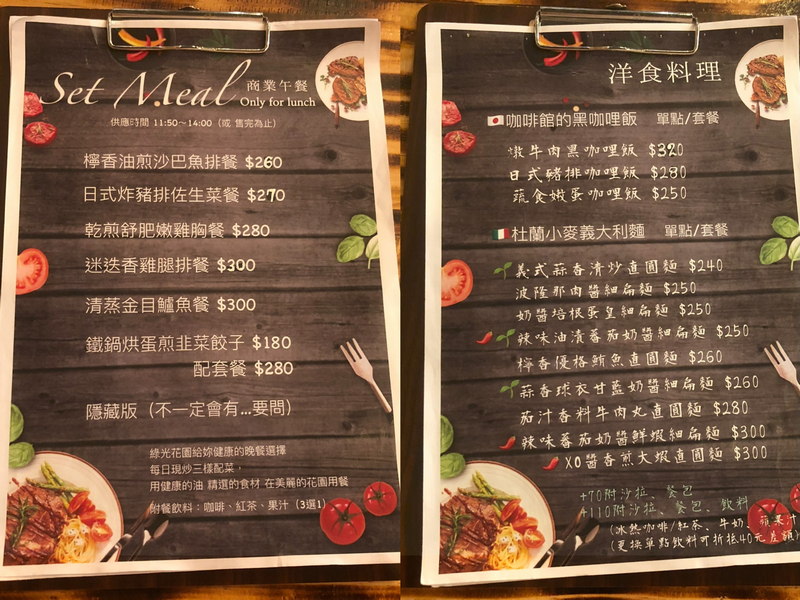 Set Meal 商業午餐
Only for lunch
供應時間 11:50～14:00（或 售完為止）
檸香油煎沙巴魚排餐 $260
日式炸豬排佐生菜餐 $270
乾煎舒肥嫩雞胸餐 $280
迷迭香雞腿排餐 $300
清蒸金目鱸魚餐 $300
鐵鍋烘蛋煎韭菜餃子 $180
配套餐 $280
隱藏版（不一定會有...要問）
綠光花園給妳健康的晚餐選擇
每日現炒三樣配菜，
用健康的油 精選的食材 在美麗的花園用餐
附餐飲料：咖啡、紅茶、果汁（3選1）
洋食料理
咖啡館的黑咖哩飯 單點/套餐
燉牛肉黑咖哩飯 $320
日式豬排咖哩飯 $280
蔬食嫩蛋咖哩飯 $250
杜蘭小麥義大利麵 單點/套餐
義式蒜香清炒直圓麵 $240
波隆那肉醬細扁麵 $250
奶醬培根蛋皇細扁麵 $250
辣味油漬番茄奶醬細扁麵 $250
檸香優格鮪魚直圓麵 $260
蒜香球衣甘藍奶醬細扁麵 $260
茄汁香料牛肉丸直圓麵 $280
辣味蕃茄奶醬鮮蝦細扁麵 $300
XO醬香煎大蝦直圓麵 $300
+70附沙拉、餐包
+110附沙拉、餐包、飲料
(冰熱咖啡/紅茶、牛奶、蘋果汁
(更換單點飲料可折抵40元差額)